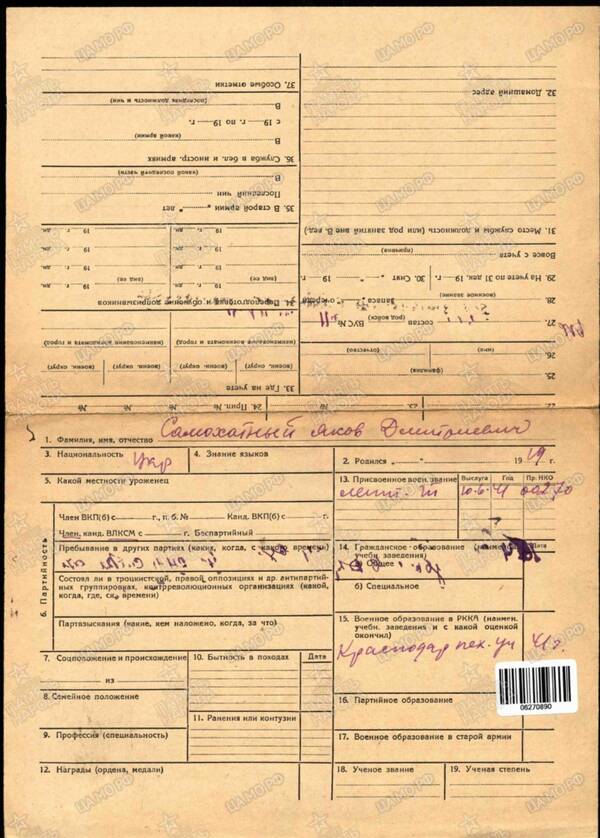 37. Особые отметки
(последняя должность и чин)
В
с 19 г. по 19 г.
(какой армии)
В
36. Служба в бел. и иностр. армиях
(какой последней части)
В
Последний чин
35. В старой армии „ “ лет
19 г. дн. 19 г. дн.
19 г. дн. 19 г. дн.
19 г. дн. 19 г. дн.
34. Переподготовка и обучение допризывников
(наименование военкомата и город) (наименование военкомата и город)
(воен. округ) (воен. округ) (воен. округ) (воен. округ)
33. Где на учете
32. Домашний адрес
31. Место службы и должность (или род занятий вне В. вед.)
(причина)
Вовсе с учета
29. На учете по 31 дек. 19 г. 30. Снят „ “ 19 г.
(военное звание)
28. запаса очереди
(род войск)
27. состав ВУС №
(имя) (отчество)
26.
(фамилия)
25.
24. Прип. № № №
1. Фамилия, имя, отчество Самохатный Яков Дмитриевич
3. Национальность Укр
4. Знание языков
2. Родился „ “ 1919 г.
5. Какой местности уроженец
13. Присвоение воен. звание Выслуга Год Пр. НКО
10.6. 41 00270
Член ВКП(б) с г., п. б. № Канд. ВКП(б) с г.
Член, канд. ВЛКСМ с г. Беспартийный
6. Партийность
Пребывание в других партиях (каких, когда, с какого времени)
Состоял ли в троцкистской, правой, оппозициях и др. антипартийных группировках, контрреволюционных организациях (какой, когда, где, ск. времени)
Партвзыскания (какие, кем наложено, когда, за что)
14. Гражданское образование (наимен. учебн. заведения) Дата
а) Общее
б) Специальное
15. Военное образование в РККА (наимен. учебн. заведения и с какой оценкой окончил)
Краснодар пех. уч 41 г.
7. Соцположение и происхождение
из
10. Бытность в походах Дата
8. Семейное положение
11. Ранения или контузии
9. Профессия (специальность)
12. Награды (ордена, медали)
06270890
16. Партийное образование
17. Военное образование в старой армии
18. Ученое звание
19. Ученая степень
ЦАМО РФ